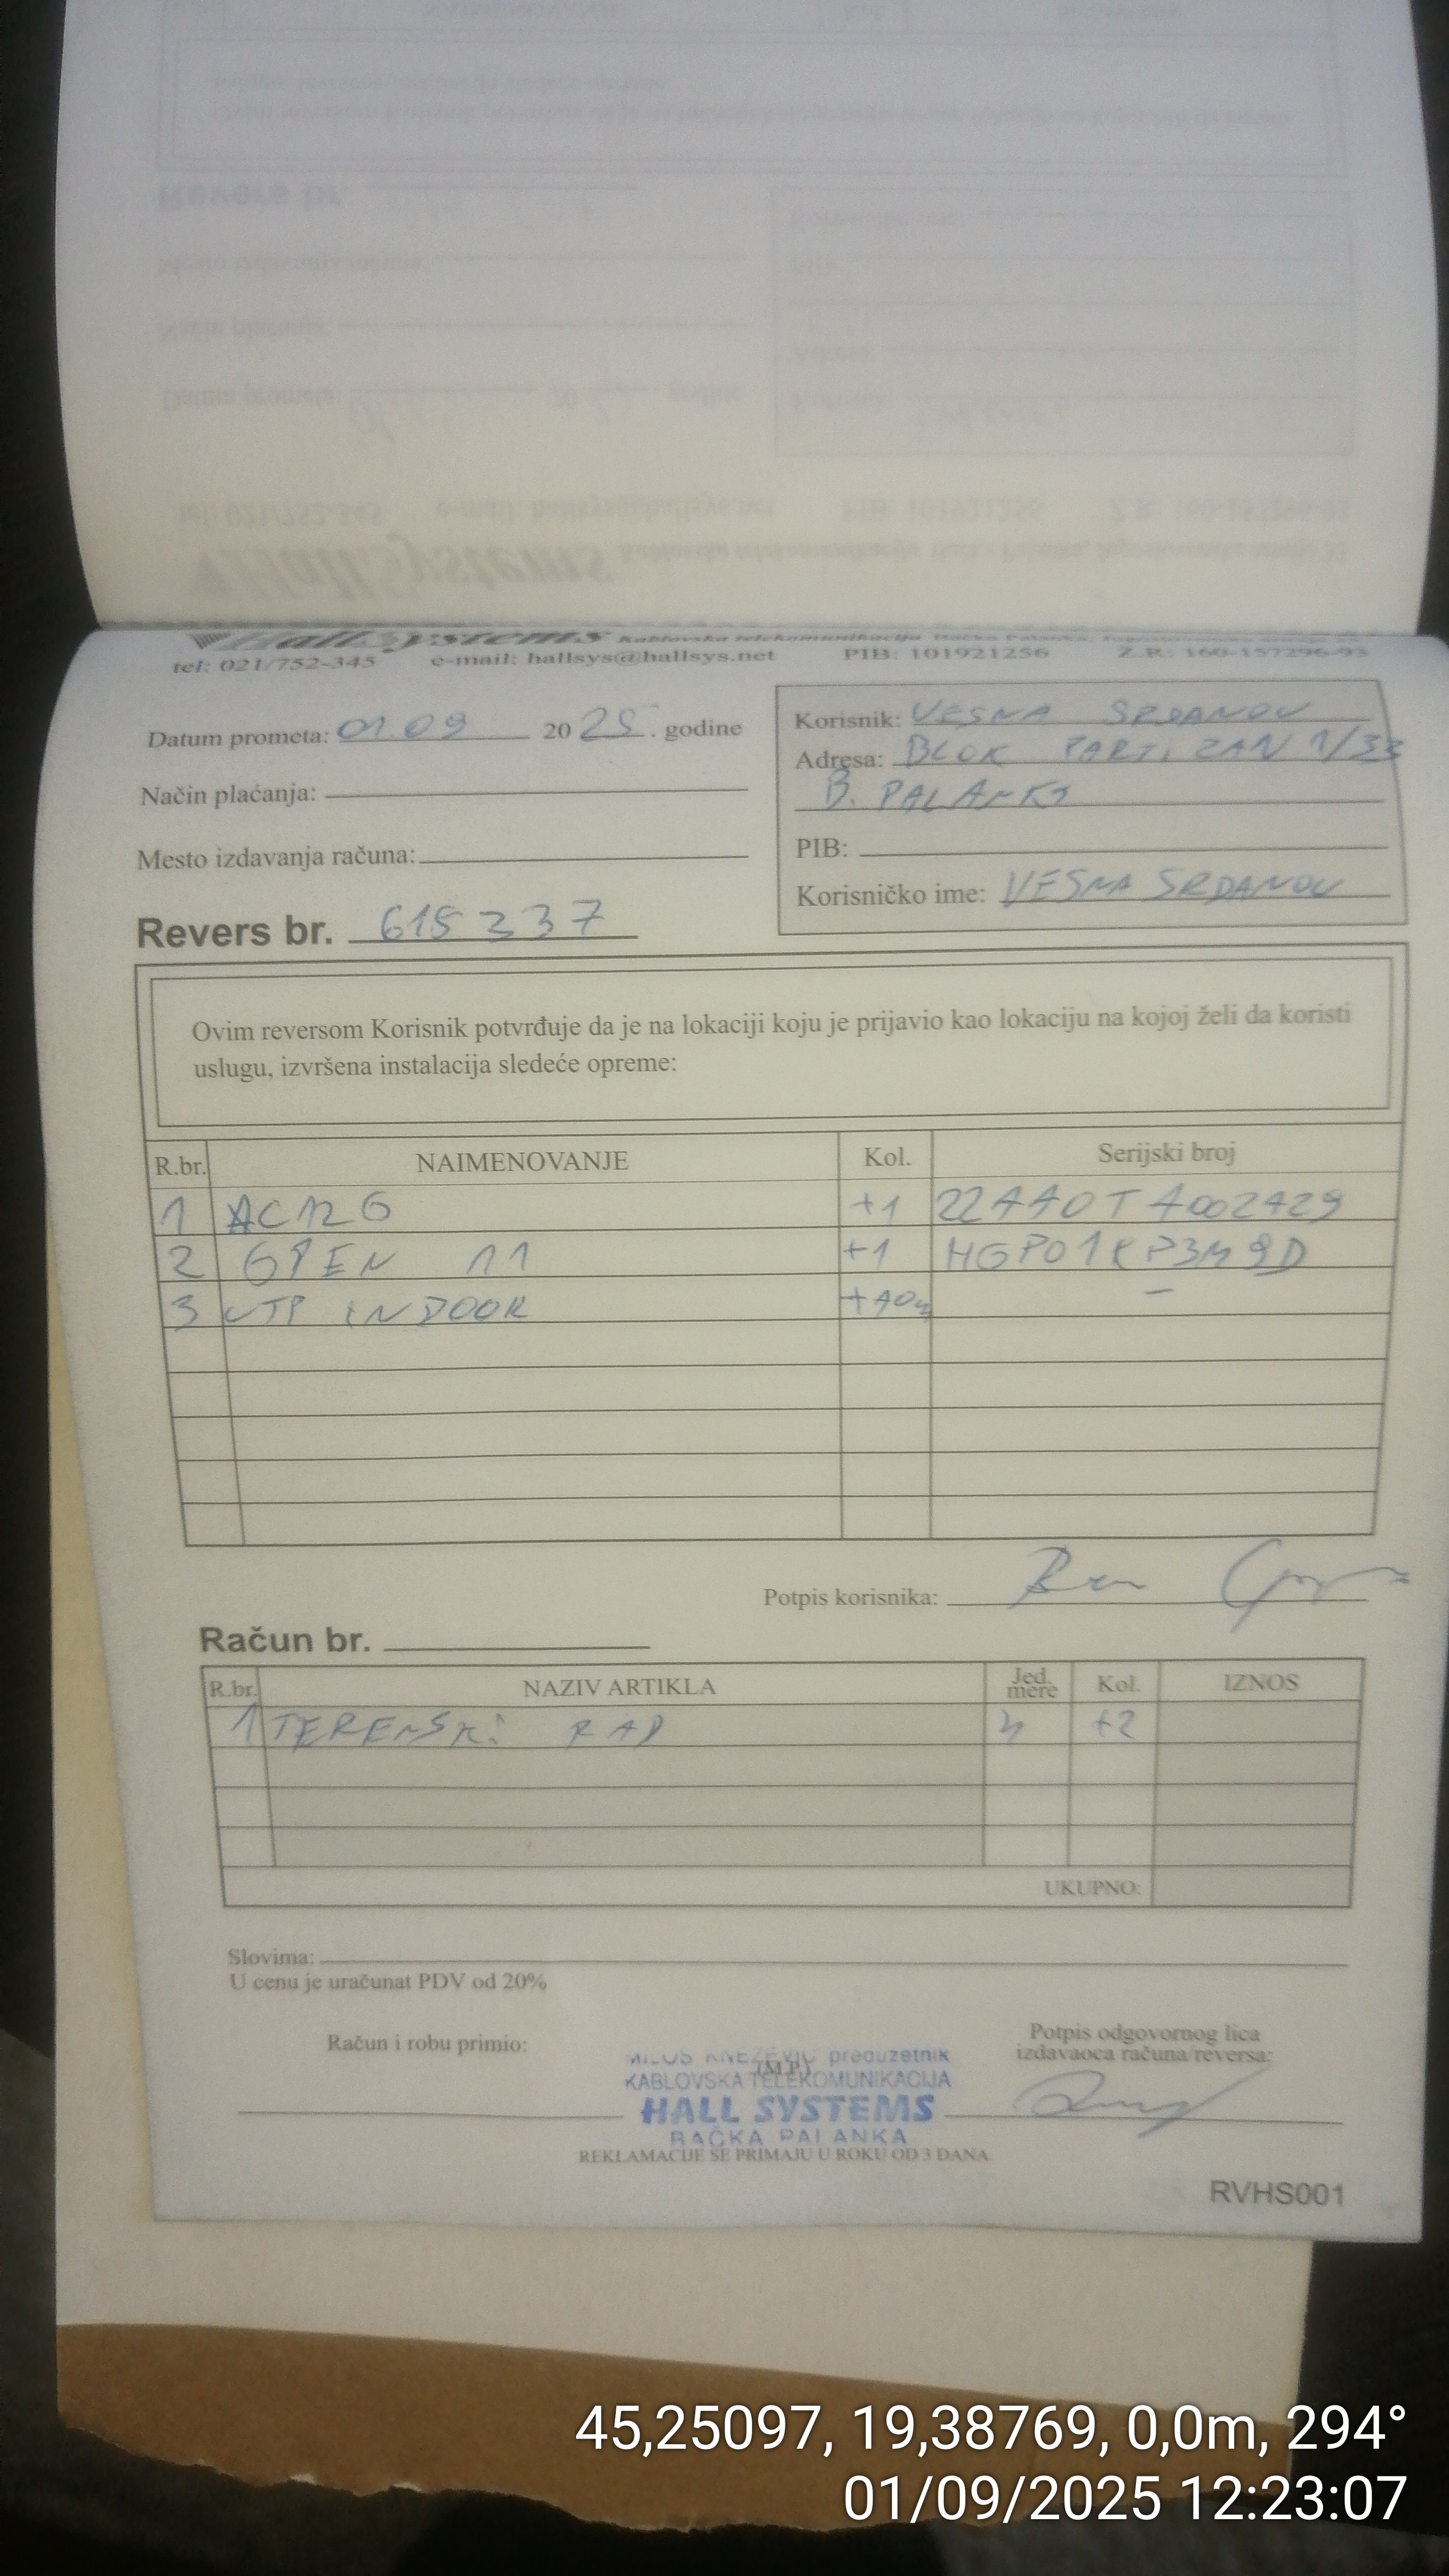 Hall Systems Kablovska telekomunikacija
tel: 021/752-345 e-mail: hallsys@hallsys.net PIB: 101921256 Z.R.: 160-157296-93
Datum prometa: 01.09 2025. godine
Način plaćanja:
Mesto izdavanja računa:
Revers br. 615337
Korisnik: VESNA SRDANOV
Adresa: BLOK PARTiZAN 1/33
B. PALANKA
PIB:
Korisničko ime: VESNA SRDANOV
Ovim reversom Korisnik potvrđuje da je na lokaciji koju je prijavio kao lokaciju na kojoj želi da koristi
uslugu, izvršena instalacija sledeće opreme:
R.br. NAIMENOVANJE Kol. Serijski broj
1 AC12G +1
2 11 +1
3 UTP INDOOR +40m –
Potpis korisnika:
Račun br.
R.br. NAZIV ARTIKLA Jed. mere Kol. IZNOS
1 TERENSKi RAD +2
UKUPNO:
Slovima:
U cenu je uračunat PDV od 20%
Račun i robu primio:
(M.P.)
Potpis odgovornog lica
izdavaoca računa/reversa:
MILOŠ KNEŽEVIĆ preduzetnik
KABLOVSKA TELEKOMUNIKACIJA
HALL SYSTEMS
BAČKA PALANKA
REKLAMACIJE SE PRIMAJU U ROKU OD 3 DANA
RVHS001
45,25097, 19,38769, 0,0m, 294°
01/09/2025 12:23:07